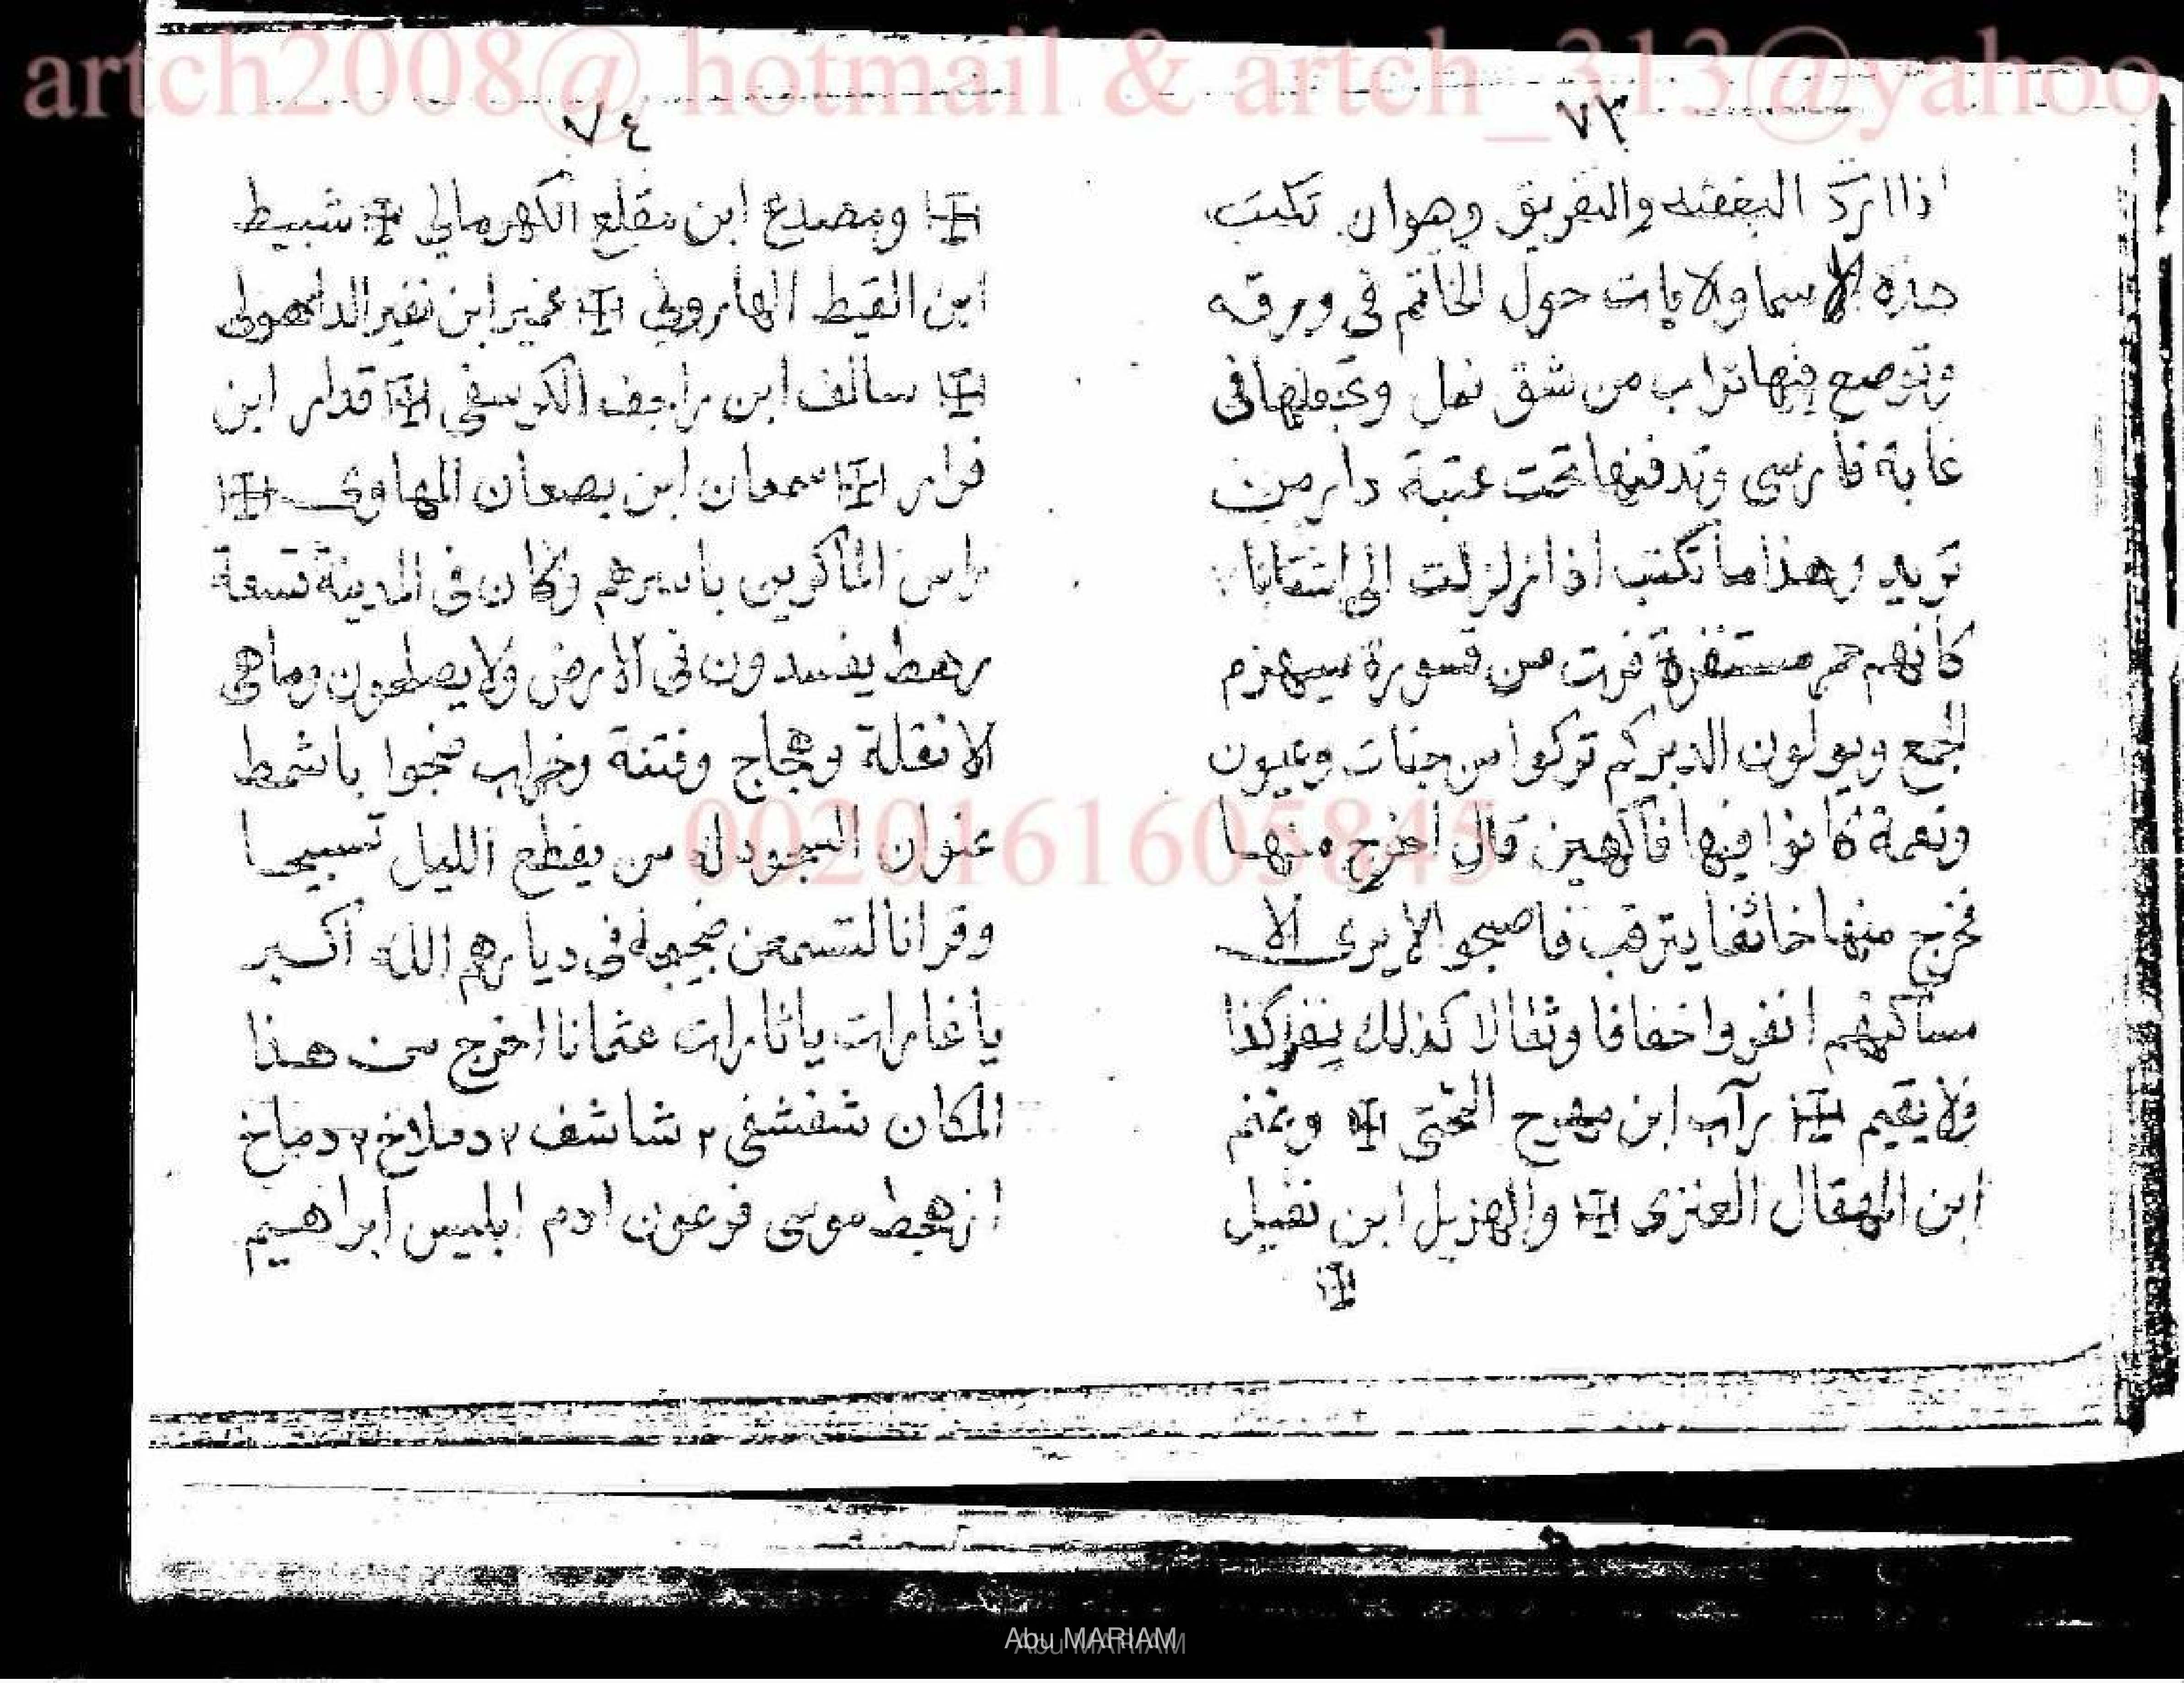 artch2008@ hotmail & artch_313@yahoo
٧٣
اذا اردت البغضه والتفريق وهو ان تكتب
هذه الاسما والايات حول الخاتم في ورقه
وتوضع فيها تراب من شق نمل وتجعلها في
غابة فارسى وتدفنها تحت عتبة دار من
تريد وهذا ما تكتب اذا زلزلت الى اشتاتا
كانهم حمر مستنفرة فرت من قسورة سيهزم
الجمع ويولون الدبر كم تركوا من جنات وعيون
ونعمة كانوا فيها فاكهين قال اخرج منها
فخرج منها خائفا يترقب فاصبحوا لا يرى الا
مساكنهم انفروا خفافا وثقالا كذلك ينفر كذا
ولا يقيم رآب ابن مهرج وغنم
ابن المهقال العنزى والهزيل ابن نفيل
٧٤
ومصدع ابن مقلع الكهرمالي شبيط
ابن القيط الهاروني عمير ابن نفير
سالف ابن راجف قدار ابن
فرار سمعان ابن بصعان المهاوى
راس الماكرين باسرهم وكان فى المدينة تسعة
رهط يفسدون فى الارض ولا يصلحون وما هى
الا نقلة وهجاج وفتنة وخراب ضجوا باشمط
عنوان السجود له من يقطع الليل تسبيحا
وقرانا لتسمعن ضجيجة فى ديارهم الله اكبر
يا غارات يا ثارات عثمانا اخرج من هذا
المكان شفشفى ٢ شاشف ٢ دملاخ ٢ دماخ
موسى فرعون ادم ابليس ابراهيم
0020161605845
Abu MARIAM